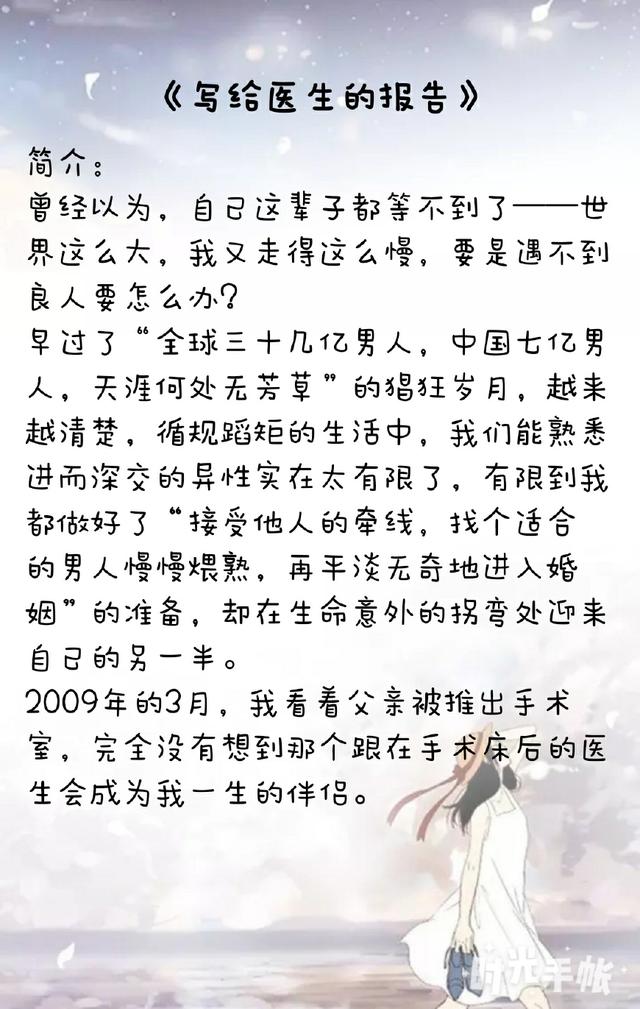 《写给医生的报告》
简介：
曾经以为，自己这辈子都等不到了——世
界这么大，我又走得这么慢，要是遇不到
良人要怎么办？
早过了“全球三十几亿男人，中国七亿男
人，天涯何处无芳草”的猖狂岁月，越来
越清楚，循规蹈矩的生活中，我们能熟悉
进而深交的异性实在太有限了，有限到我
都做好了“接受他人的牵线，找个适合
的男人慢慢煨熟，再平淡无奇地进入婚
姻”的准备，却在生命意外的拐弯处迎来
自己的另一半。
2009年的3月，我看着父亲被推出手术
室，完全没有想到那个跟在手术床后的医
生会成为我一生的伴侣。
时光手帐